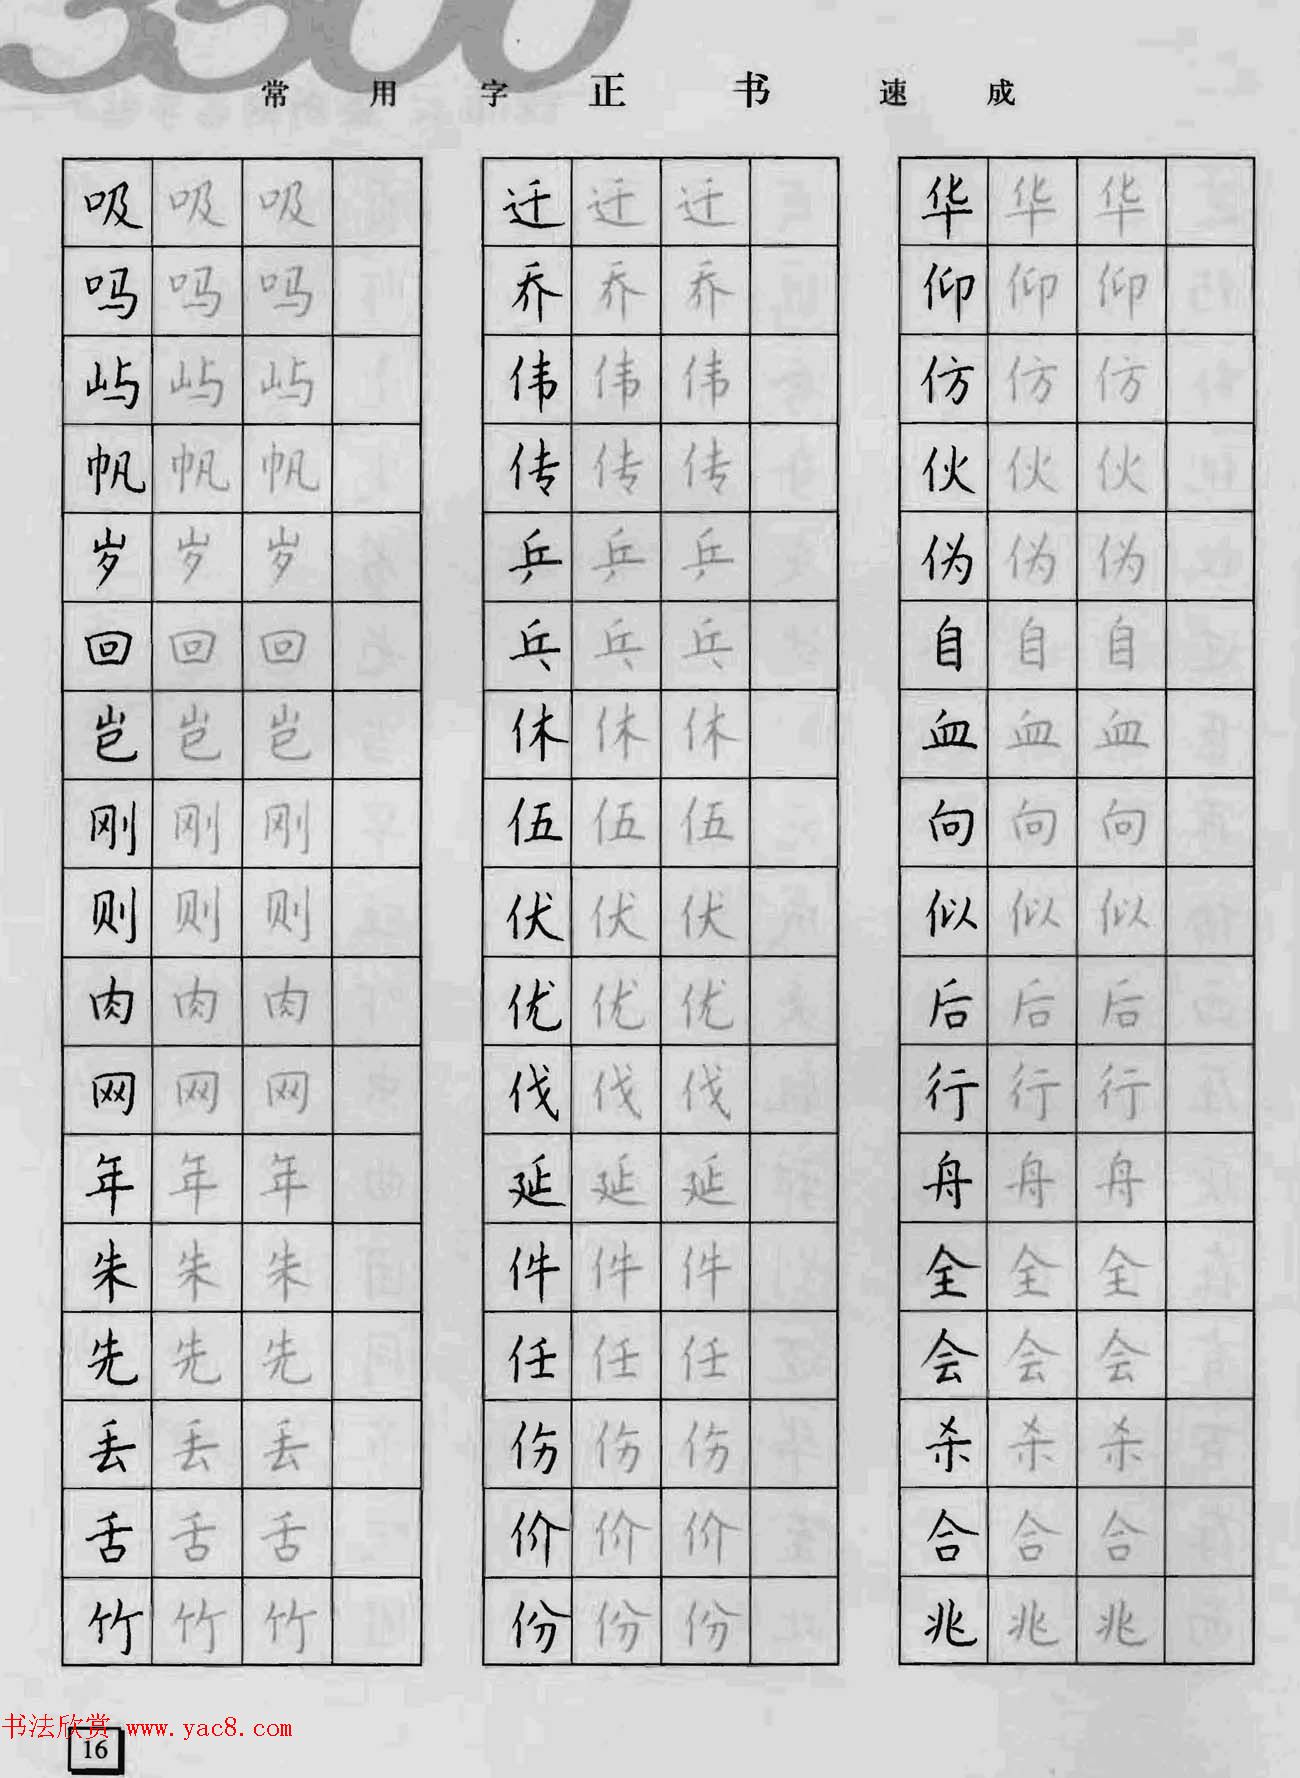 3500
常用字正书速成
吸吸吸 迁迁迁 华华华
吗吗吗 乔乔乔 仰仰仰
屿屿屿 伟伟伟 仿仿仿
帆帆帆 传传传 伙伙伙
岁岁岁 乒乒乒 伪伪伪
回回回 乓乓乓 自自自
岂岂岂 休休休 血血血
刚刚刚 伍伍伍 向向向
则则则 伏伏伏 似似似
肉肉肉 优优优 后后后
网网网 伐伐伐 行行行
年年年 延延延 舟舟舟
朱朱朱 件件件 全全全
先先先 任任任 会会会
丢丢丢 伤伤伤 杀杀杀
舌舌舌 价价价 合合合
竹竹竹 份份份 兆兆兆
书法欣赏 www.yac8.com
16